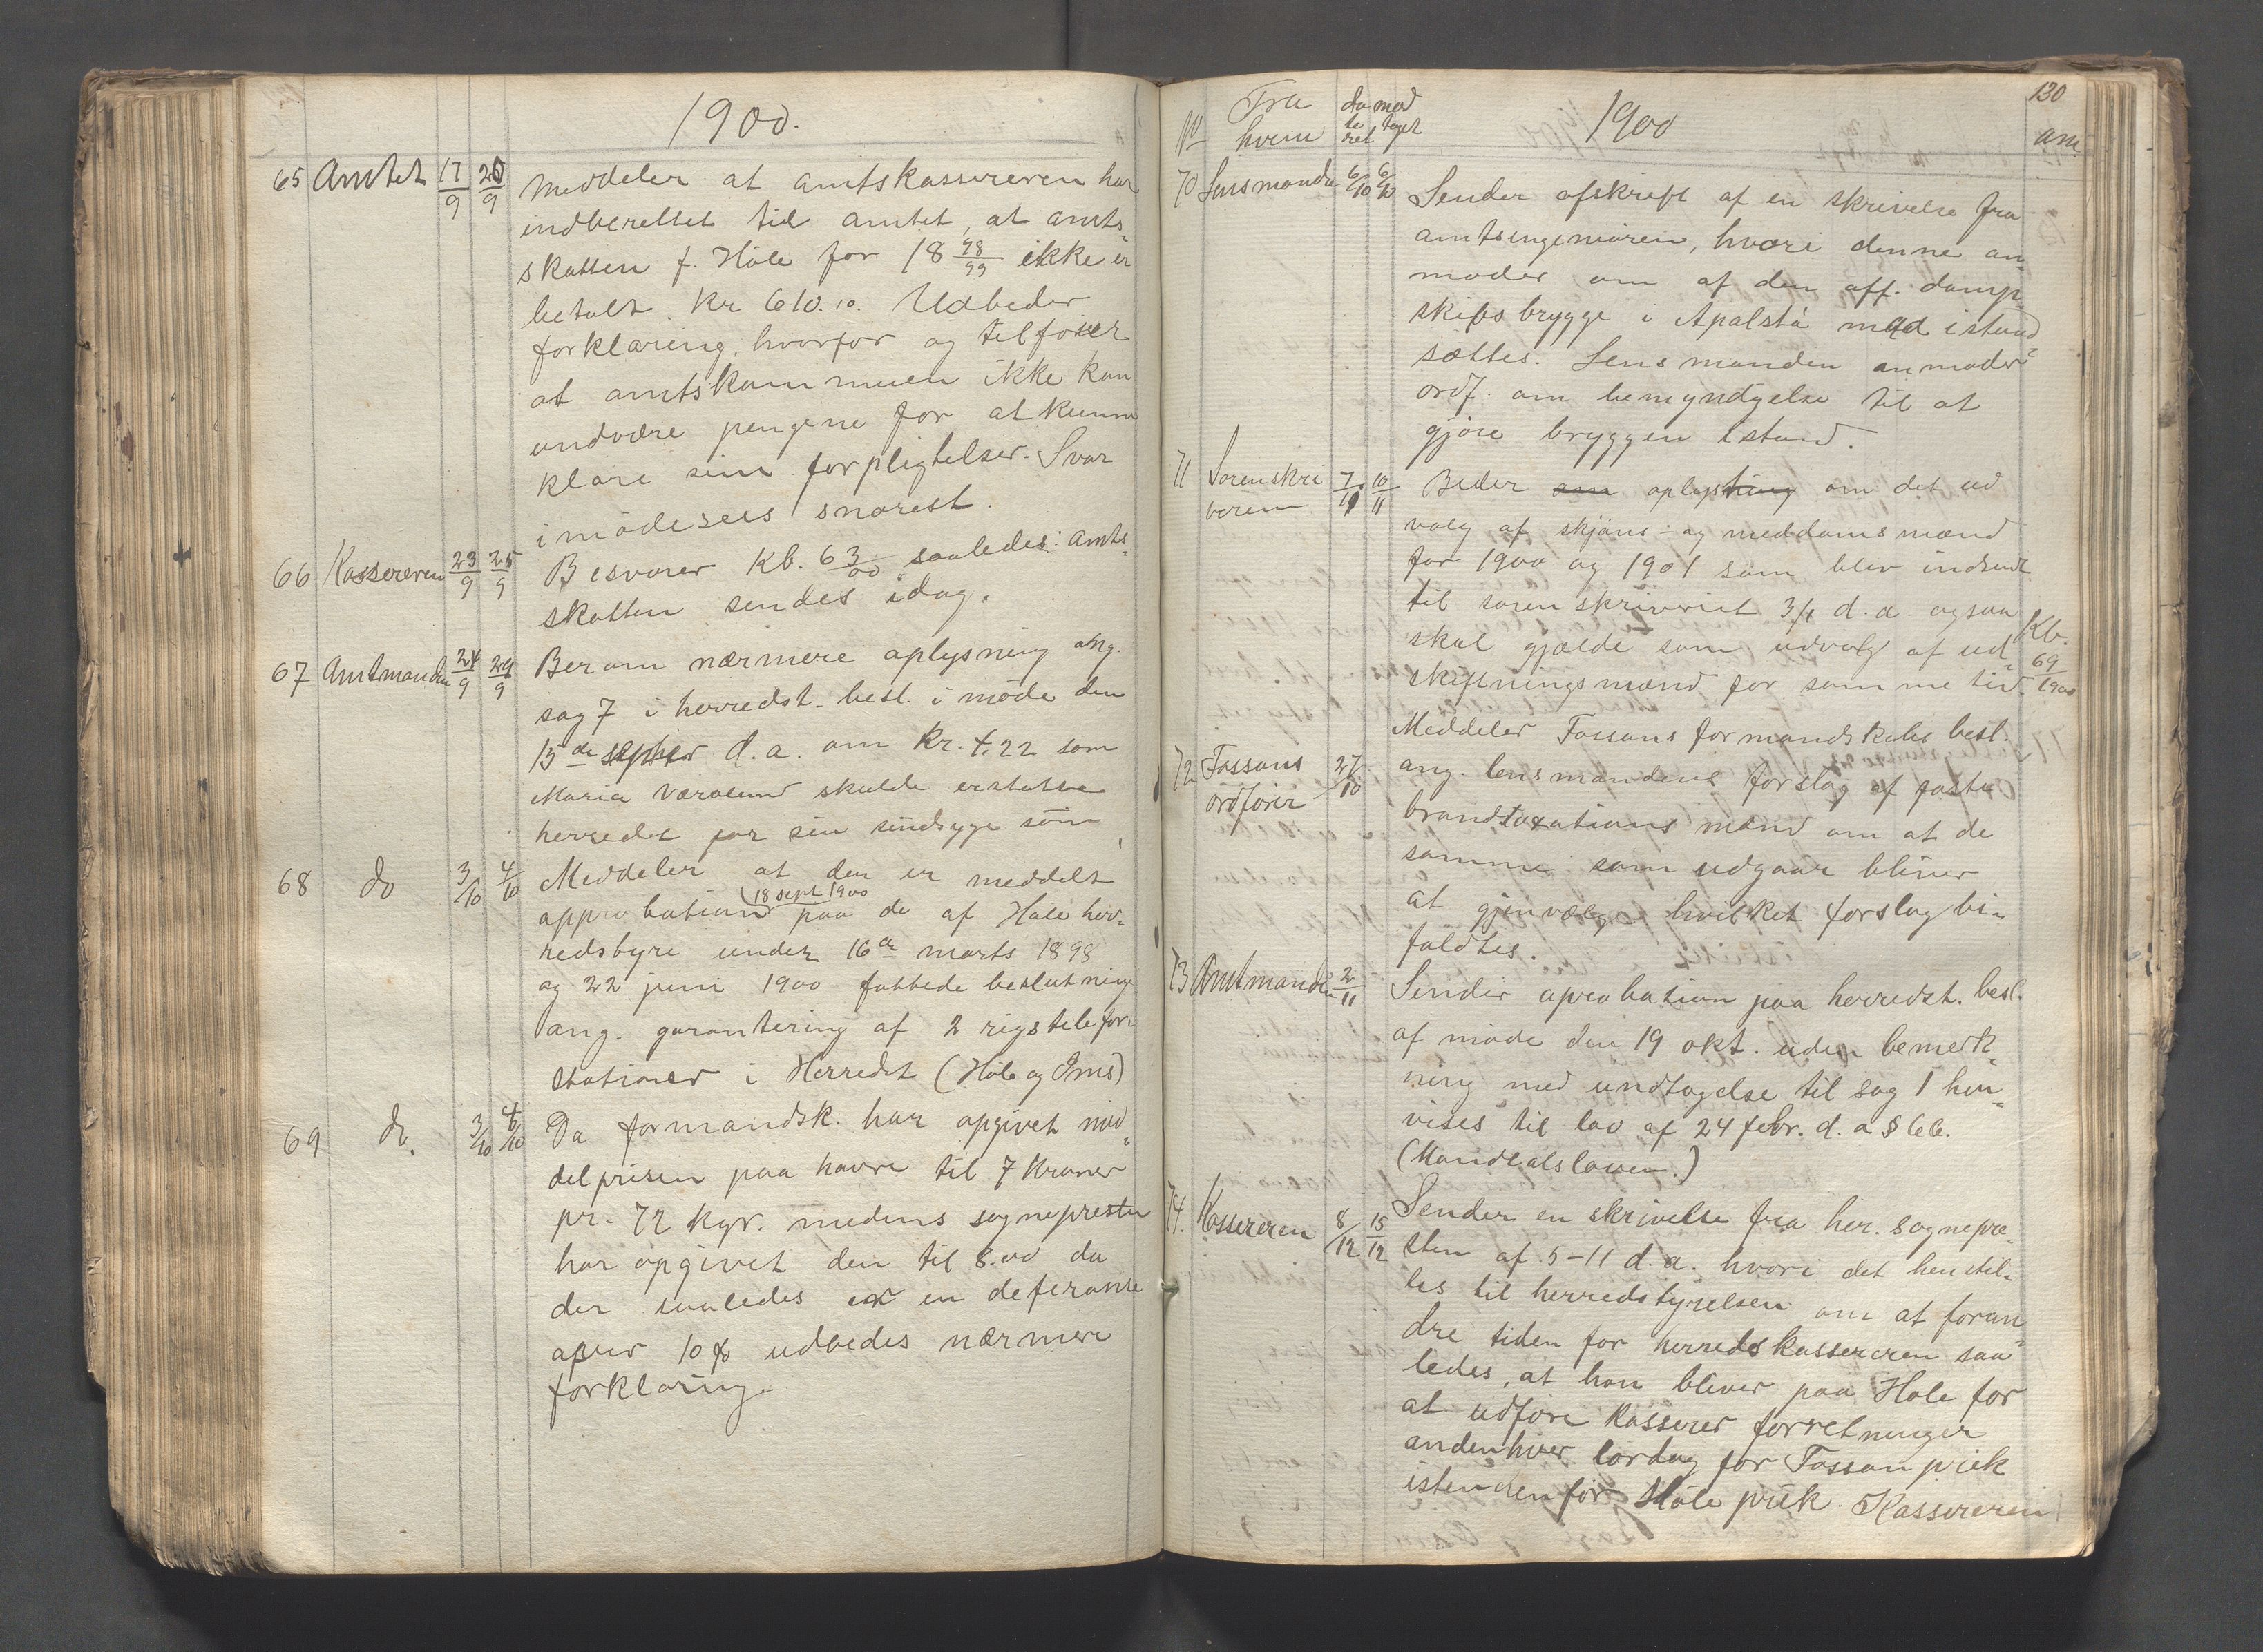 1900.
65 Amtet 17/9 20/9 Meddeler at amtskassereren har
indberettet til amtet, at amts-
skatten f. Høle for 18 98/99 ikke er
betalt. Kr 610.10. Udbeder
forklaring, hvorfor og tilføier
at amtskommunen ikke kan
undvære pengene for at kunne
klare sine forpligtelser. Svar
imødesees snarest.
66 Kassereren 23/9 25/9 Besvarer Kb. 63/00 saaledes: Amts-
skatten sendes idag.
67 Amtmanden 24/9 29/9 Ber om nærmere oplysning ang.
sag 7 i herredst. besl. i møde den
15de septbr d.a. om kr. 4.22 som
Maria Væraland skulde erstatte
herredet for sin sindsyge søn
68 do 3/10 4/10 Meddeler at den er meddelt
approbation (18 sept 1900 paa de af Høle her-
redsbyre under 16de marts 1898
og 22 juni 1900 fattede beslutninge
ang. garantering af 2 rigstelefon
stationer i Herredet (Høle og Ims)
69 do. 3/10 4/10 Da formandsk. har opgivet mid-
delprisen paa havre til 7 Kroner
pr. 72 kgr. medens sognepresten
har opgivet den til 8.00 da
der saaledes er en deferanse
over 10 % udbedes nærmere
forklaring.
130
No Fra hvem da te ret mod taget 1900 anm.
70 Lensmanden 6/10 6/10 Sender afskrift af en skrivelse fra
amtsingeniøren, hvori denne an-
moder om af den off. damp-
skibsbrygge i Apalstø mad istand-
sættes. Lensmanden anmoder
ordf. om bemyndigelse til at
gjøre bryggen istand.
71 Sorenskri
veren 7/11 10/11 Beder om oplysning om det ud
valg af skjøns- og meddomsmænd
for 1900 og 1901 som blev indsendt
til sorenskriveriet 3/1 d.a. ogsaa
skal gjælde som udvalg af ud-
skiftningsmænd for samme tid. Kb. 69/1900
72 Fossans
ordfører 27/10 Meddeler Fossans formandskabs besl.
ang. lensmandens forslag af faste
brandtaxationsmænd om at de
samme som udgaar bliver
at gjenvælge hvilket forslag bi-
faldtes.
73 Amtmanden 2/11 Sender aprobation paa herredst. besl.
af møde den 19 okt. uden bemerk-
ning med undtagelse til sag 1 hen-
vises til lov af 24 febr. d.a § 66.
(Mandtalsloven.)
74. Kassereren 8/12 15/12 Sender en skrivelse fra her. sognepre-
sten af 5-11 d.a. hvori det henstil-
les til herredstyrelsen om at foran-
dre tiden for herredskassereren saa-
ledes, at han bliver paa Høle for
at udføre kasserer forretninger
andenhver lørdag for Fossan pr��k
istendenfor Høle præk. Kassereren